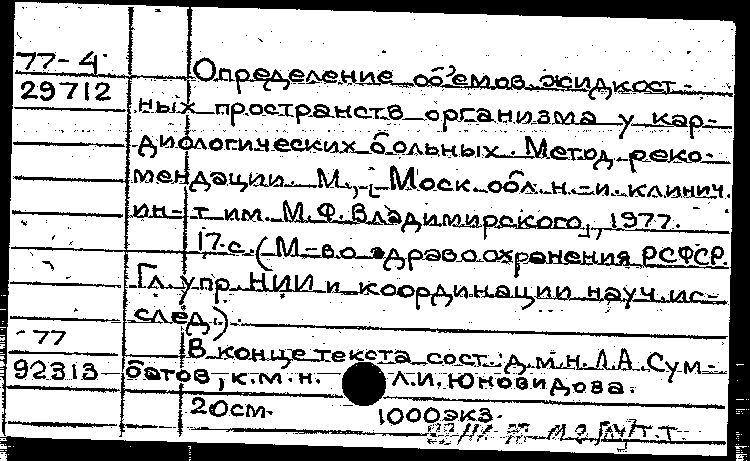 77-4
29712
Определение об'емов жидкост-
ных пространств организма у кар-
диологических больных. Метод. реко-
мендации. М., [Моск. обл. н.-и. клинич.
ин-т им. М.Ф. Владимирского], 1977.
17 с. (М-во здравоохранения РСФСР.
Гл. упр. НИИ и координации науч. ис-
след.).
77
92313
В конце текста сост.: д.м.н. Л.А. Сум-
батов, к.м.н. Л.И. Юновидова.
20см. 1000экз.